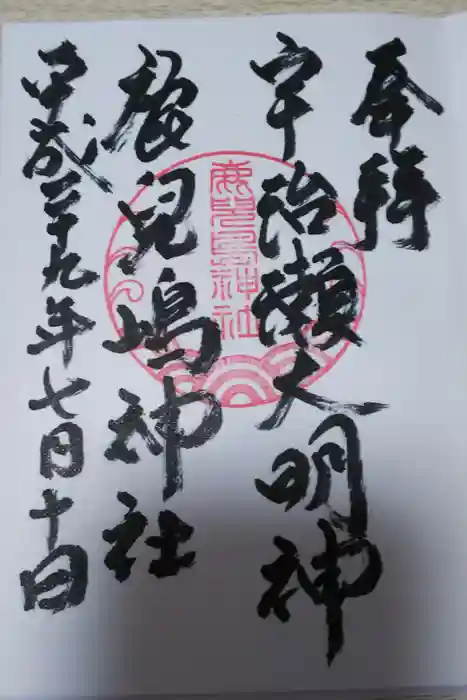 奉拝
宇治瀬大明神
鹿兒嶋神社
平成二十九年七月十日
鹿兒島神社